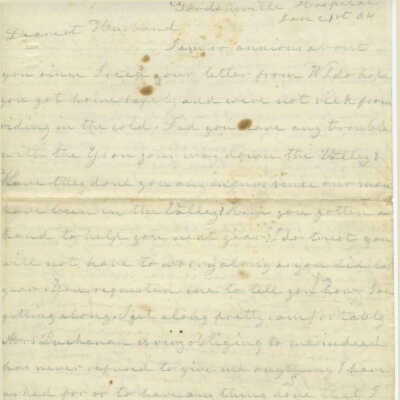 Gordonsville Hospital
Jan 21st 64
Dearest Husband
I am so anxious about
you since I recd your letter from W I do hope
you got home safely and were not sick from
riding in the cold. Did you have any trouble
with the Yson your way down the Valley?
Have they done you any injury since our men
have been in the Valley? Have you gotten a
hand to help you next year? I do trust you
will not have to worry along as you did last
year. You requested me to tell you how I am
getting along. I get along pretty comfortable
Mrs Buchanan is very obliging to me indeed
has never refused to give me anything I have
asked for or to have any thing done that I